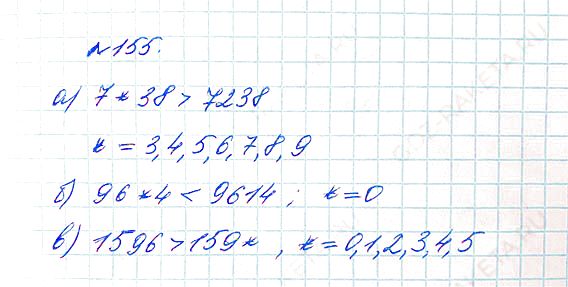 №155.
а) 7*38 > 7238
* = 3,4,5,6,7,8,9
б) 96*4 < 9614 ; * = 0
в) 1596 > 159* , * = 0,1,2,3,4,5